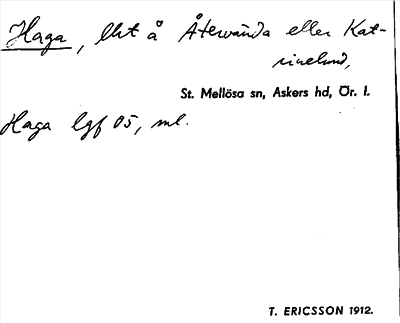 Haga, lht å Återvända eller Kat-
rinelund,
St. Mellösa sn, Askers hd, Ör. l.
Haga lgf 05, ml.
T. ERICSSON 1912.